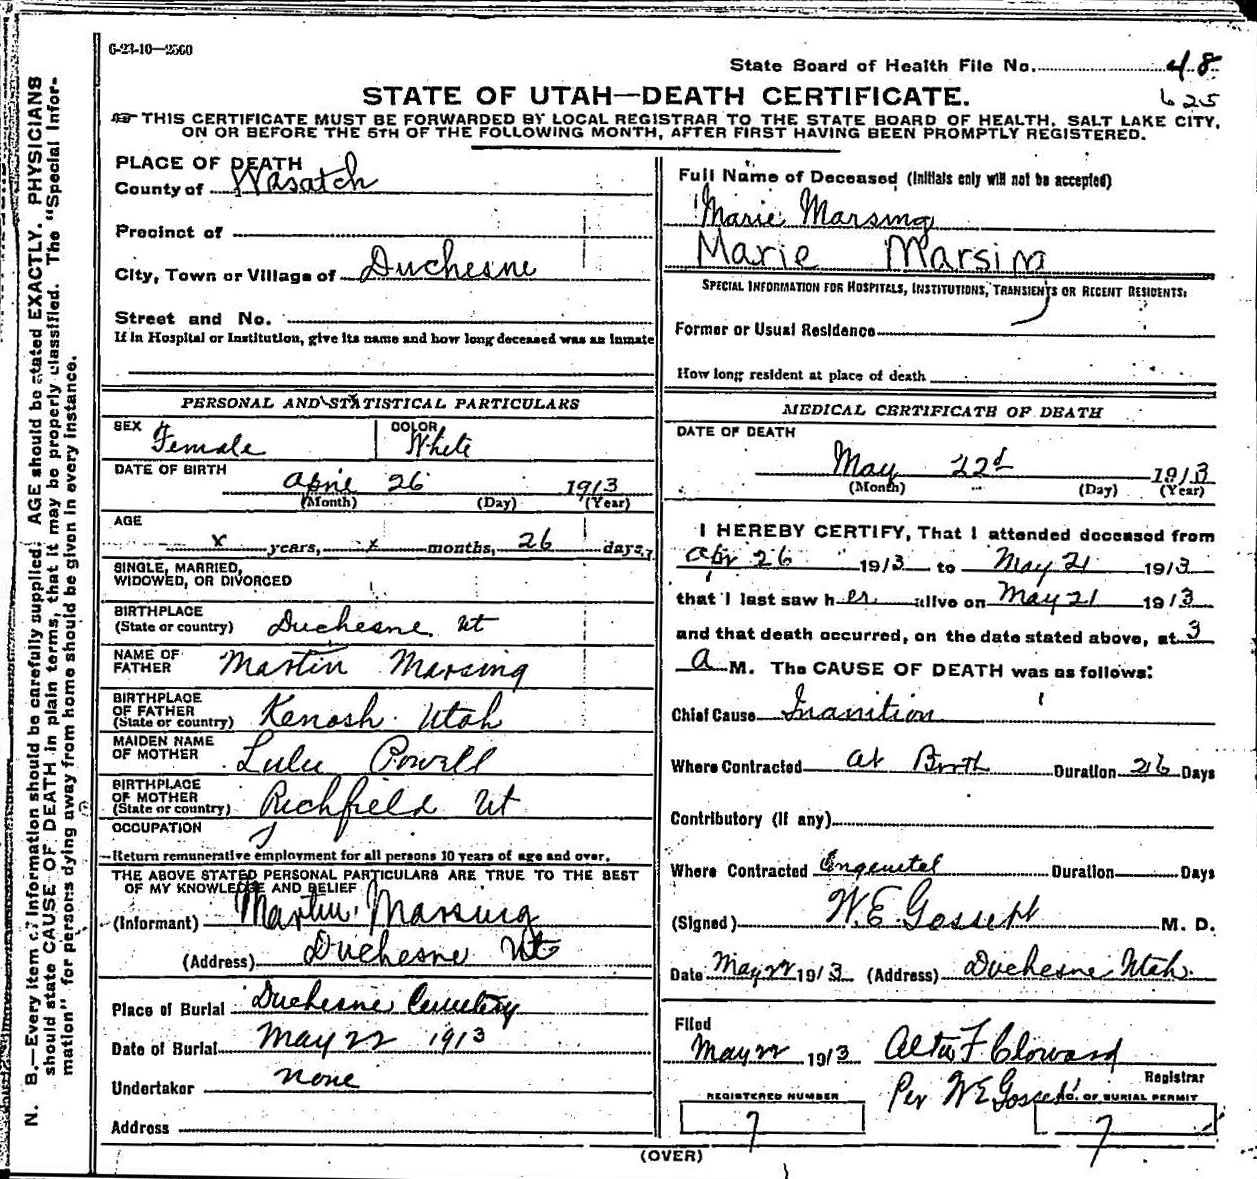 6-23-10—2560
State Board of Health File No. 48
625
STATE OF UTAH—DEATH CERTIFICATE.
THIS CERTIFICATE MUST BE FORWARDED BY LOCAL REGISTRAR TO THE STATE BOARD OF HEALTH, SALT LAKE CITY,
ON OR BEFORE THE 5TH OF THE FOLLOWING MONTH, AFTER FIRST HAVING BEEN PROMPTLY REGISTERED.
N. B.—Every item of information should be carefully supplied. AGE should be stated EXACTLY. PHYSICIANS
should state CAUSE OF DEATH in plain terms, that it may be properly classified. The "Special Infor-
mation" for persons dying away from home should be given in every instance.
PLACE OF DEATH
County of Wasatch
Precinct of
City, Town or Village of Duchesne
Street and No.
If in Hospital or Institution, give its name and how long deceased was an inmate
PERSONAL AND STATISTICAL PARTICULARS
SEX Female COLOR White
DATE OF BIRTH
April 26 1913
(Month) (Day) (Year)
AGE
x years, x months, 26 days,
SINGLE, MARRIED,
WIDOWED, OR DIVORCED
BIRTHPLACE
(State or country) Duchesne Ut
NAME OF
FATHER Martin Marsing
BIRTHPLACE
OF FATHER
(State or country) Kenosh Utah
MAIDEN NAME
OF MOTHER Lulu Powell
BIRTHPLACE
OF MOTHER
(State or country) Richfield Ut
OCCUPATION
Return remunerative employment for all persons 10 years of age and over.
THE ABOVE STATED PERSONAL PARTICULARS ARE TRUE TO THE BEST
OF MY KNOWLEDGE AND BELIEF
(Informant) Martin Marsing
(Address) Duchesne Ut
Place of Burial Duchesne Cemetery
Date of Burial May 22 1913
Undertaker none
Address
Full Name of Deceased (Initials only will not be accepted)
Marie Marsing
Marie Marsing
SPECIAL INFORMATION FOR HOSPITALS, INSTITUTIONS, TRANSIENTS OR RECENT RESIDENTS:
Former or Usual Residence
How long resident at place of death
MEDICAL CERTIFICATE OF DEATH
DATE OF DEATH
May 22d 1913
(Month) (Day) (Year)
I HEREBY CERTIFY, That I attended deceased from
Apr 26 1913 to May 21 1913
that I last saw her alive on May 21 1913
and that death occurred, on the date stated above, at 3
a M. The CAUSE OF DEATH was as follows:
Chief Cause Inanition
Where Contracted at Birth Duration 26 Days
Contributory (if any)
Where Contracted Duration Days
(Signed) W. E. Gossett M. D.
Date May 22 1913 (Address) Duchesne Utah
Filed
May 22 1913 Alta F Cloward
Registrar
Per W E Gossett
REGISTERED NUMBER
7
No. OF BURIAL PERMIT
7
(OVER)